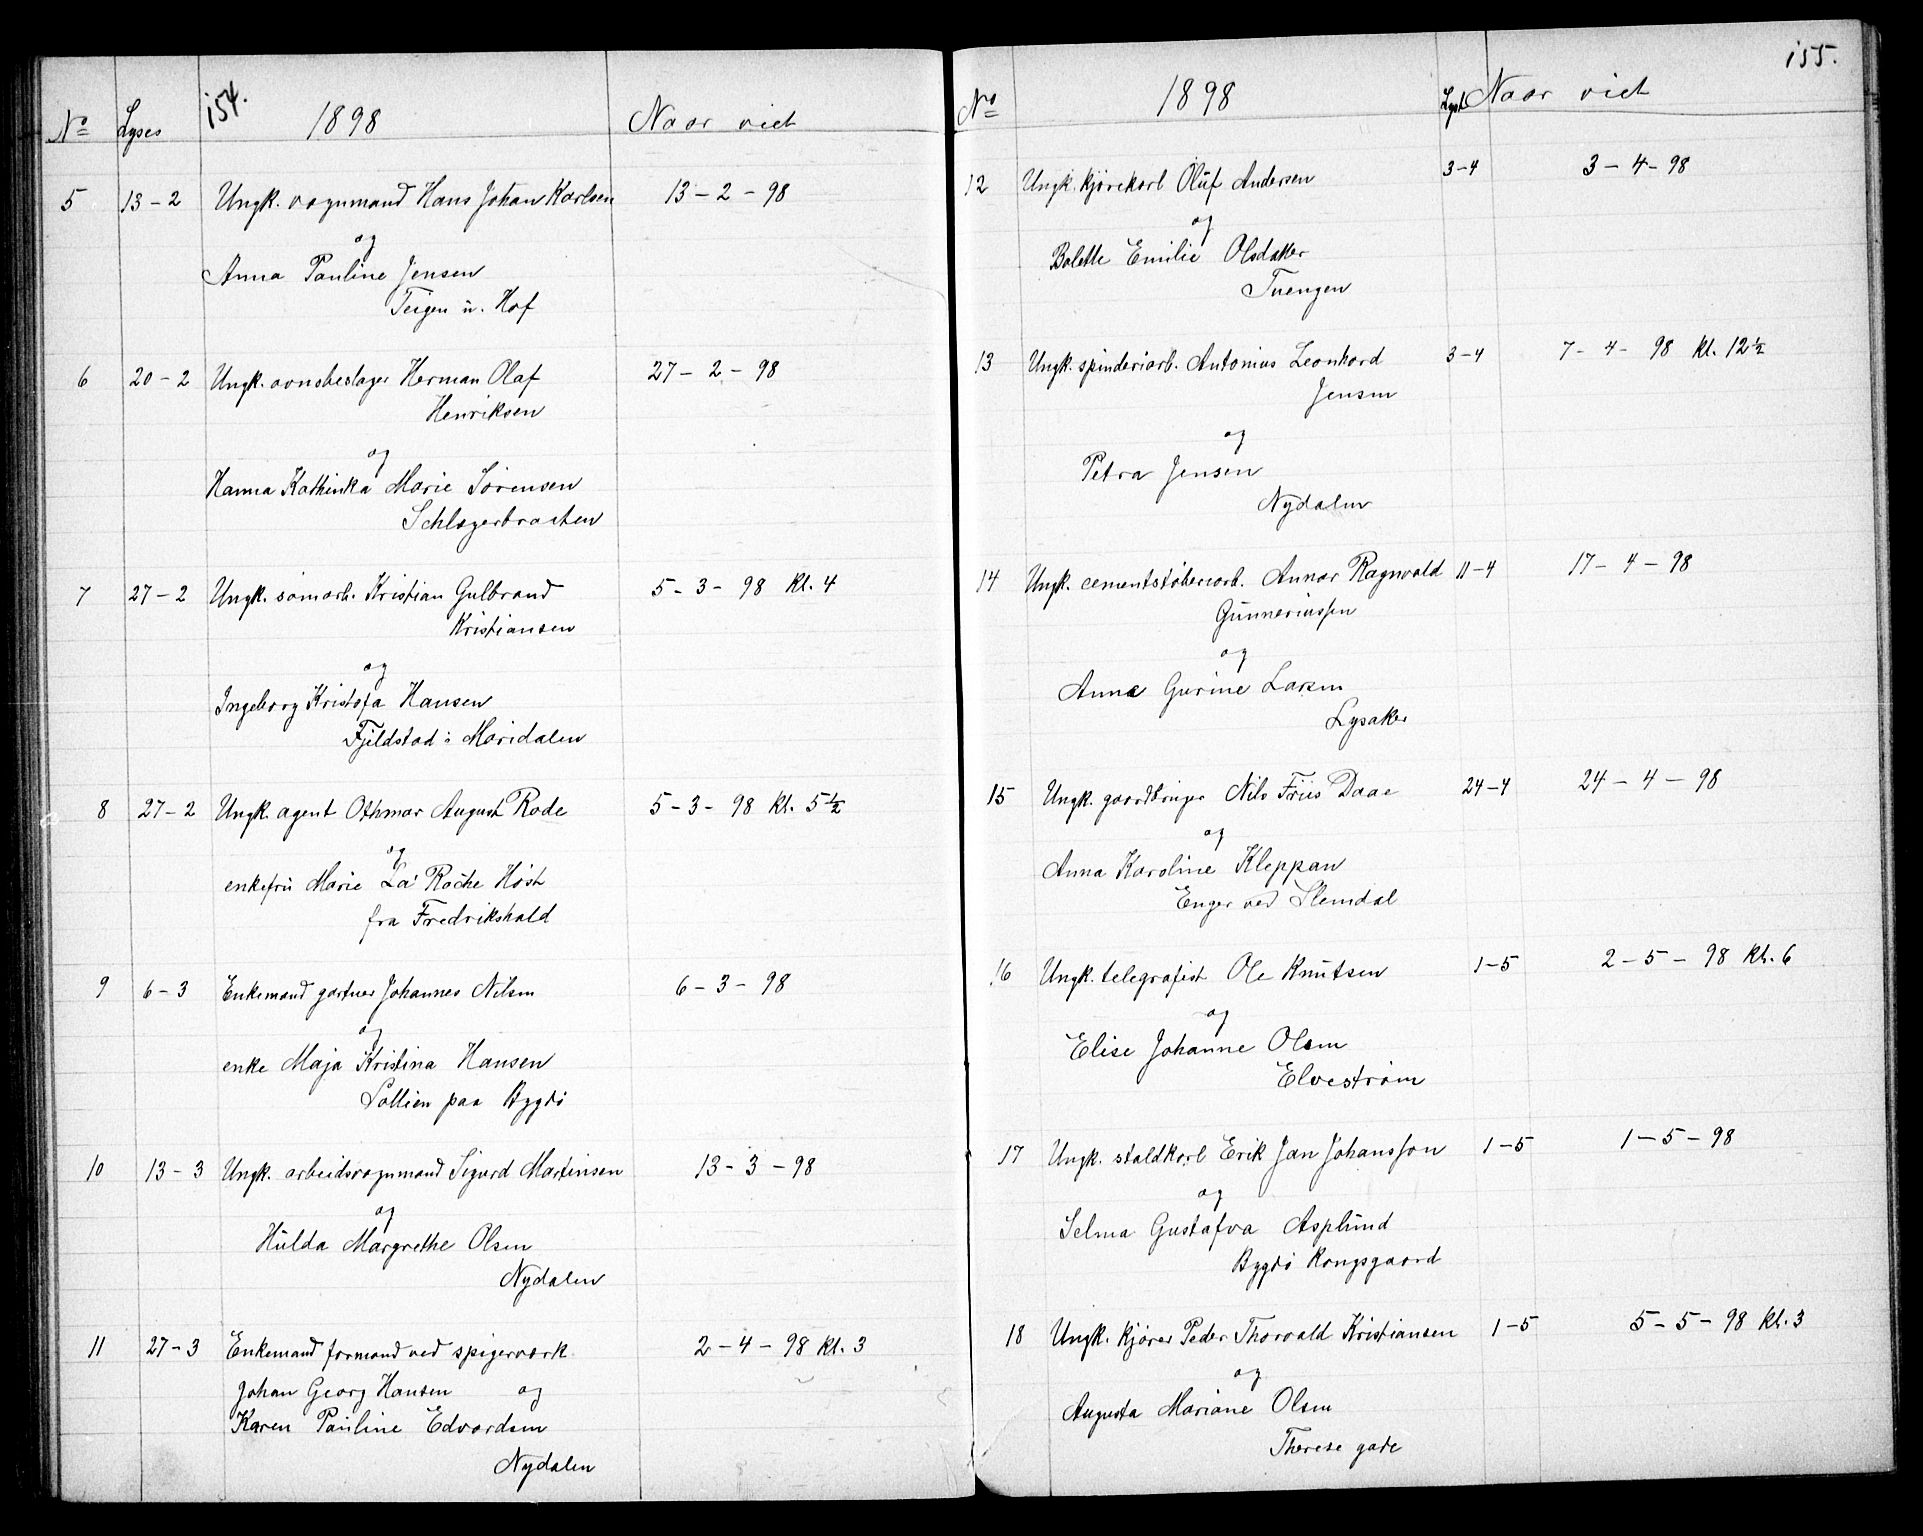 154.
Nº Lyses 1898 Naar viet
5 13-2 Ungk. vognmand Hans Johan Karlsen 13-2-98
og
Anna Pauline Jensen
Teigen u. Hof
6 20-2 Ungk. ovnsbeslager Herman Olaf 27-2-98
Henriksen
og
Hanna Kathinka Marie Sørensen
Schlagerbraaten
7 27-2 Ungk. sømarb. Kristian Gulbrand 5-3-98 Kl. 4
Kristiansen
og
Ingeborg Kristofa Hansen
Fjeldstad i Maridalen
8 27-2 Ungk. agent Othmar August Rode 5-3-98 Kl. 5½
og
enkefru Marie La' Roche Høst
fra Fredrikshald
9 6-3 Enkemand gartner Johannes Nilsen 6-3-98
og
enke Maja Kristina Hansen
Lollien paa Bygdö
10 13-3 Ungk. arbeidsvognmand Sigurd Martinsen 13-3-98
og
Hulda Margrethe Olsen
Nydalen
11 27-3 Enkemand formand ved spigerverk 2-4-98 Kl. 3
Johan Georg Hansen og
Karen Pauline Edvardsen
Nydalen
155.
Nº 1898 Lyst Naar viet
12 Ungk. kjørekarl Oluf Andersen 3-4 3-4-98
og
Bolette Emilie Olsdatter
Tuengen
13 Ungk. spinderiarb. Antonius Leonhard 3-4 7-4-98 Kl. 12½
Jensen
og
Petra Jensen
Nydalen
14 Ungk. cementstøberiarb. Annar Ragnvald 11-4 17-4-98
Gunneriussen
og
Anna Gurine Larsen
Lysaker
15 Ungk. gaardbruger Nils Friis Daae 24-4 24-4-98
og
Anna Karoline Kleppan
Enger ved Slemdal
16 Ungk. telegrafist Ole Knutsen 1-5 2-5-98 Kl. 6
og
Elise Johanne Olsen
Elvestrøm
17 Ungk. staldkarl Erik Jan Johansson 1-5 1-5-98
og
Selma Gustafva Asplund
Bygdö Kongsgaard
18 Ungk. kjører Peder Thorvald Kristiansen 1-5 5-5-98 Kl. 3
og
Augusta Mariane Olsen
Therese gade